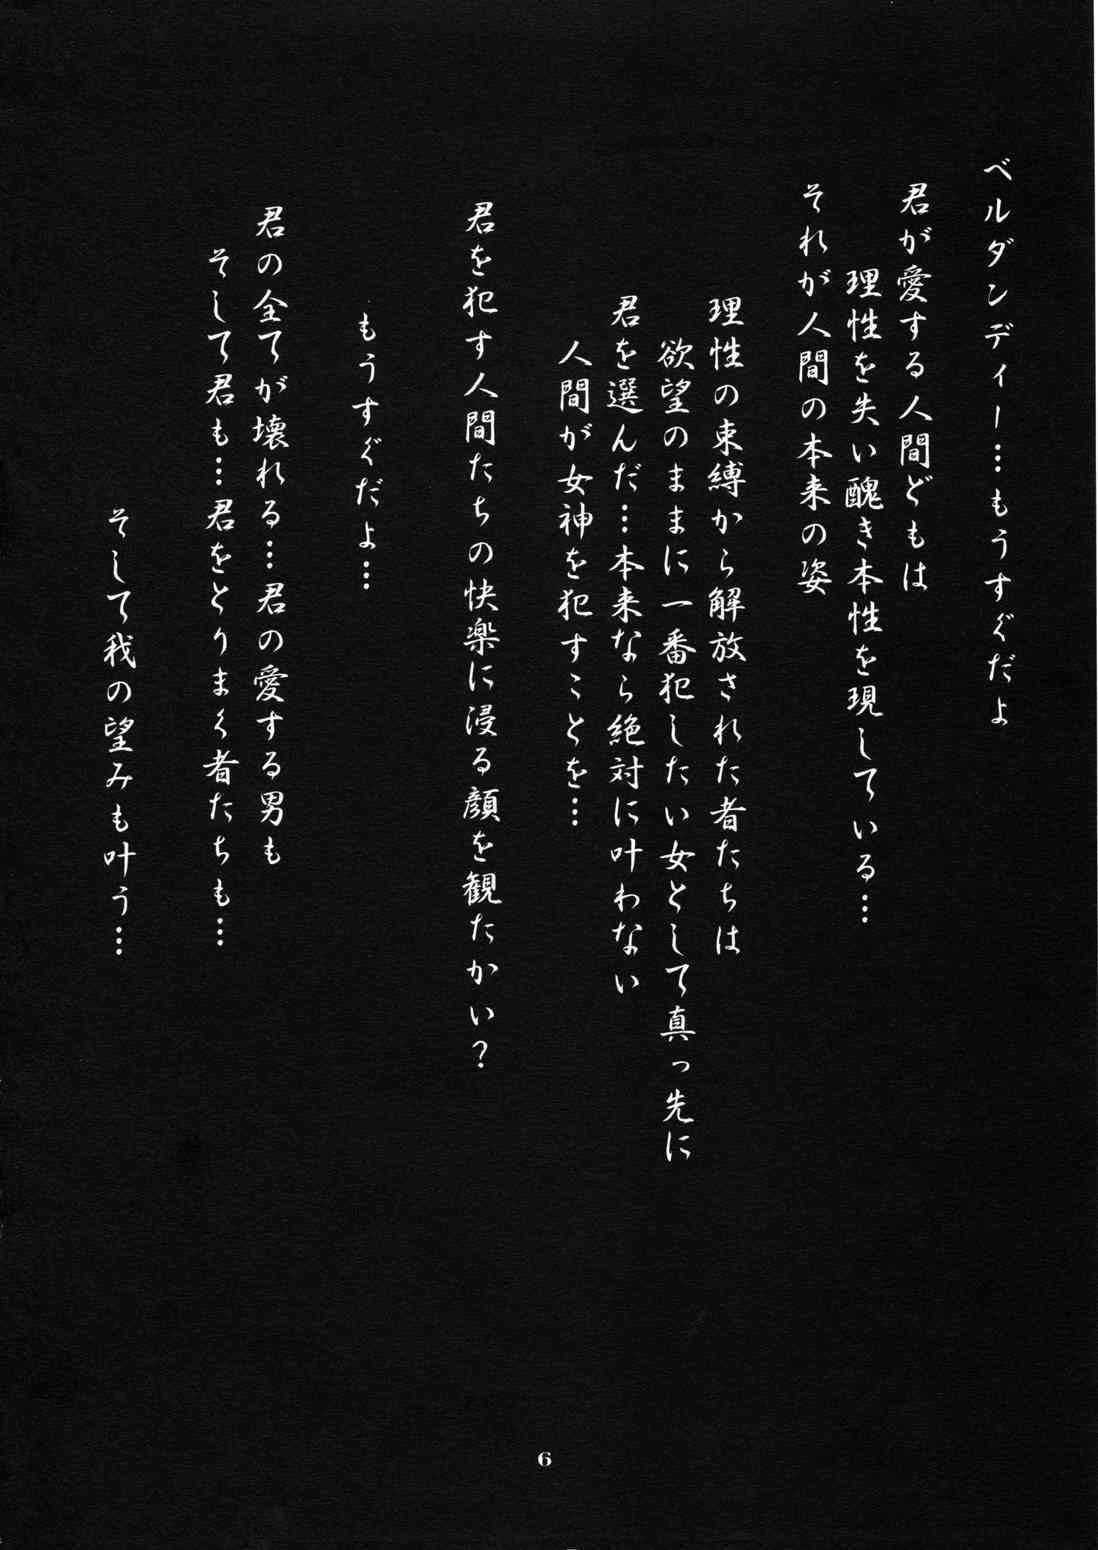 ベルダンディー…もうすぐだよ
君が愛する人間どもは
理性を失い醜き本性を現している…
それが人間の本来の姿
理性の束縛から解放された者たちは
欲望のままに一番犯したい女として真っ先に
君を選んだ…本来なら絶対に叶わない
人間が女神を犯すことを…
君を犯す人間たちの快楽に浸る顔を観たかい？
もうすぐだよ…
君の全てが壊れる…君の愛する男も
そして君も…君をとりまく者たちも…
そして我の望みも叶う…
6